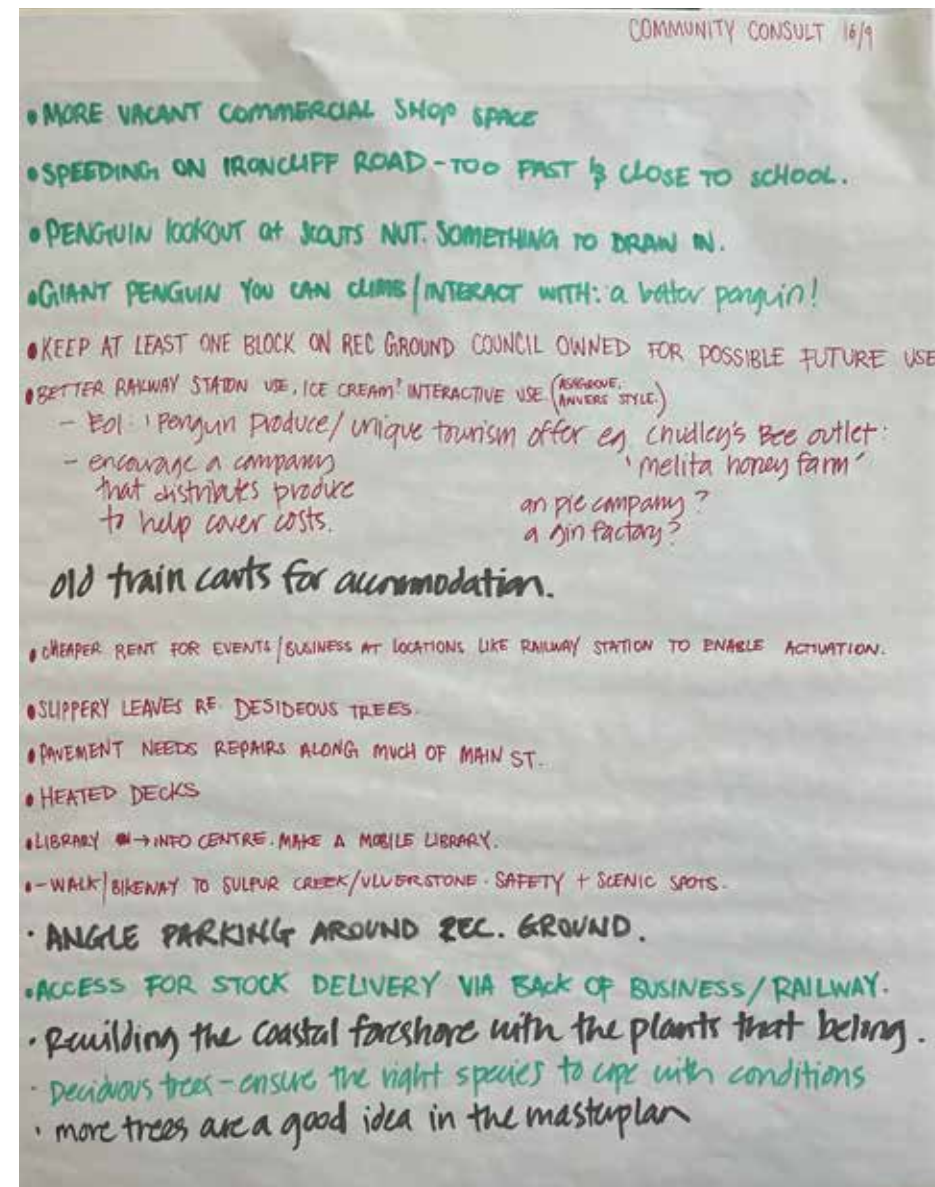 COMMUNITY CONSULT 16/9
• MORE VACANT COMMERCIAL SHOP SPACE
• SPEEDING ON IRONCLIFF ROAD - TOO FAST & CLOSE TO SCHOOL.
• PENGUIN lookout at SCOUTS HUT. SOMETHING TO DRAW IN.
• GIANT PENGUIN YOU CAN CLIMB/INTERACT WITH: a better penguin!
• KEEP AT LEAST ONE BLOCK ON REC GROUND COUNCIL OWNED FOR POSSIBLE FUTURE USE
• BETTER RAILWAY STATION USE. ICE CREAM? INTERACTIVE USE (ASHGROVE, ANVERS STYLE.)
- EOI: 'Penguin Produce/unique tourism offer eg Chudley's Bee outlet:
- encourage a company 'melita honey farm'
that distributes produce an pie company?
to help cover costs. a gin factory?
old train carts for accommodation.
• CHEAPER RENT FOR EVENTS/BUSINESS AT LOCATIONS LIKE RAILWAY STATION TO ENABLE ACTIVATION.
• SLIPPERY LEAVES RE. DESIDEOUS TREES.
• PAVEMENT NEEDS REPAIRS ALONG MUCH OF MAIN ST.
• HEATED DECKS
• LIBRARY → INFO CENTRE. MAKE A MOBILE LIBRARY.
• - WALK/BIKEWAY TO SULPUR CREEK/ULVERSTONE. SAFETY + SCENIC SPOTS.
• ANGLE PARKING AROUND REC. GROUND.
• ACCESS FOR STOCK DELIVERY VIA BACK OF BUSINESS/RAILWAY.
• Rewilding the coastal foreshore with the plants that belong.
• Deciduous trees - ensure the right species to cope with conditions
• more trees are a good idea in the masterplan